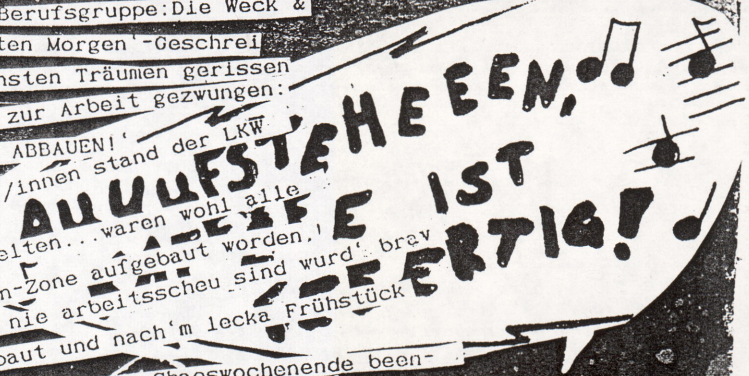 Berufsgruppe:Die Weck &
ten Morgen'-Geschrei
nsten Träumen gerissen
zur Arbeit gezwungen:
ABBAUEN!'
/innen stand der LKW
elten...waren wohl alle
n-Zone aufgebaut worden,'
nie arbeitsscheu sind wurd' brav
baut und nach'm lecka Frühstück
Chaoswochenende been-
AUUUFSTEHEEEN,
IST
ERTIG!